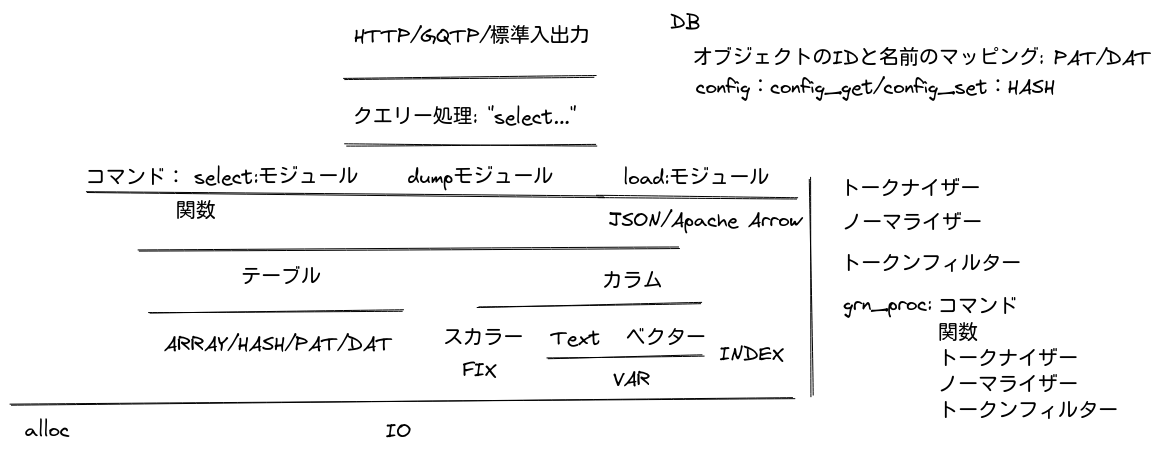 HTTP/GQTP/標準入出力
クエリー処理: "select..."
コマンド： select:モジュール dumpモジュール load:モジュール
関数 JSON/Apache Arrow
テーブル カラム
ARRAY/HASH/PAT/DAT
スカラー Text ベクター
FIX VAR
INDEX
alloc IO
DB
オブジェクトのIDと名前のマッピング: PAT/DAT
config：config_get/config_set：HASH
トークナイザー
ノーマライザー
トークンフィルター
grn_proc: コマンド
関数
トークナイザー
ノーマライザー
トークンフィルター